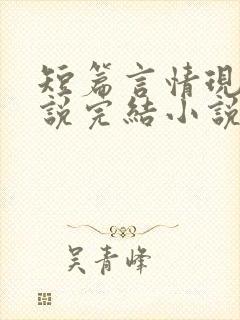 短篇言情現
說完結小說
吴青峰